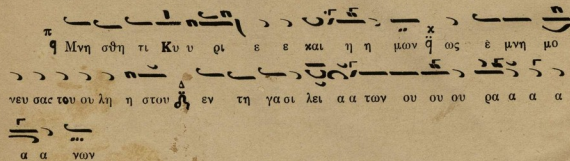 Μνη σθη τι Κυ υ ρι ε ε και η η μων ως ἐ μνη μο
νευ σας του ου λη η στου εν τη γα σι λει α α των ου ου ου ρα α α α
α α νων